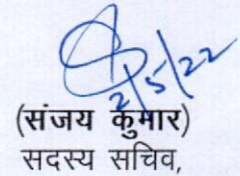 2/5/22
(संजय कुमार)
सदस्य सचिव,